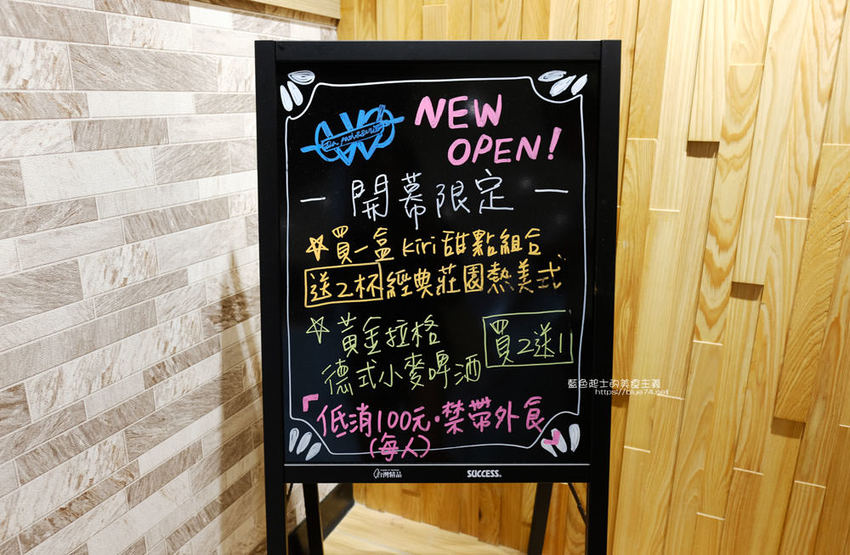 NEW
OPEN!
— 開幕限定 —
☆買一盒 kiri 甜點組合
送2杯經典莊園熱美式
☆黃金拉格
德式小麥啤酒
買2送1
「低消100元·禁帶外食」
(每人)
台灣精品
SUCCESS
藍色起士的美食主義
https://blue74.net